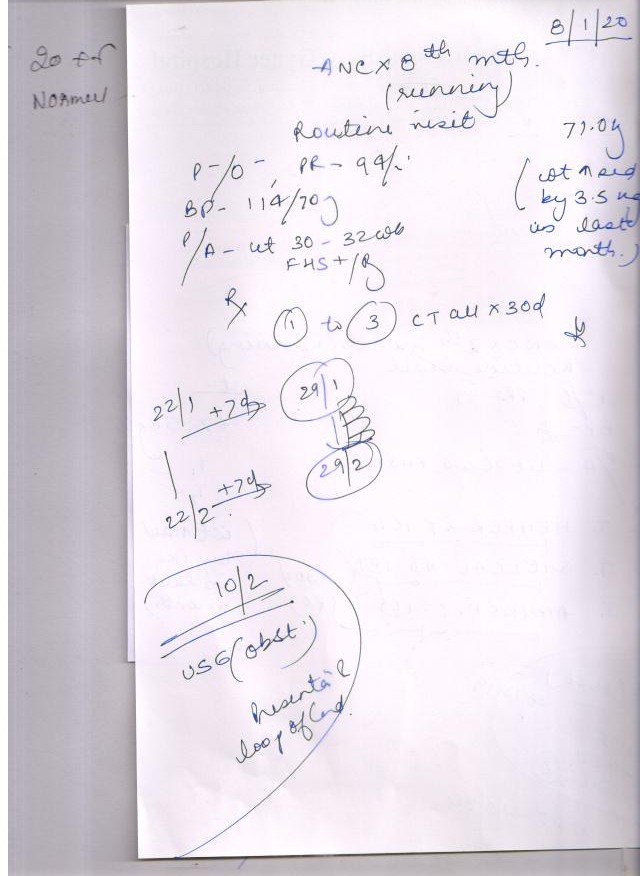 8/1/20
Normal
ANC x 8th mth.
(running)
Routine visit
P-/0-, PR- 94/.
BP- 114/70
P/A- ut 30-32wk
FHS+/R
by 3.5 kg
last
month.)
Rx
① to ③ CT all x 30d
22/1 +7d 29/1
22/2 +7d 29/2
10/2
USG (obst.)
loop of Cord.